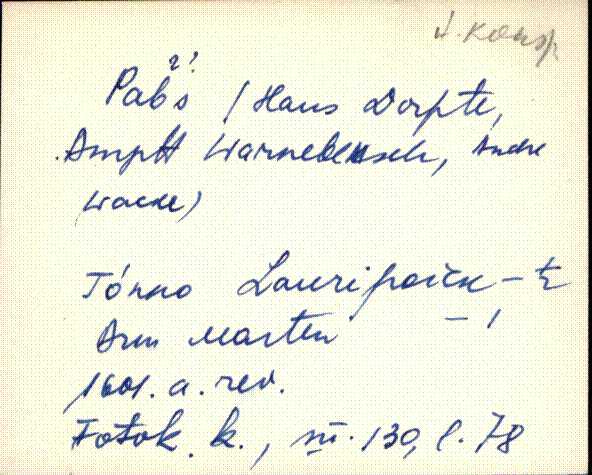 N. Konsp.
?!
Pabs (Hans Dorpte,
Amptt Warnebeksch, Andre
Wacke)
Tónno Lauripoick – ½
Ann Marten – 1
1601. a. rev.
Fotok. k., III. 130, l. 78